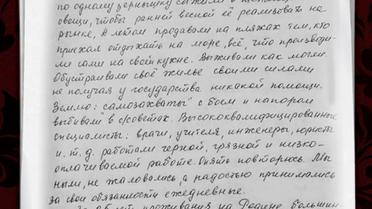 по одному зернышку сажали в
овощи, чтоб ранней весной её реализовать на
рынке, а летом продавали на пляжах тем, кто
приехал отдыхать на море, всё, что производи-
ли сами на своей кухне. Выживали как могли.
Обустраивали своё жильё своими силами
не получая у государства никакой помощи.
Землю: самозахваты с боем и напором
выбивали в с/советах. Высококвалифицированные
специалисты: врачи, учителя, инженеры, юристы
и. т. д. работали черной, грязной и низко-
оплачиваемой работе опять повторюсь. Мы
ныли, не жаловались, а с радостью принимались
за свои обязанности ежедневные.
проживания на Родине большин